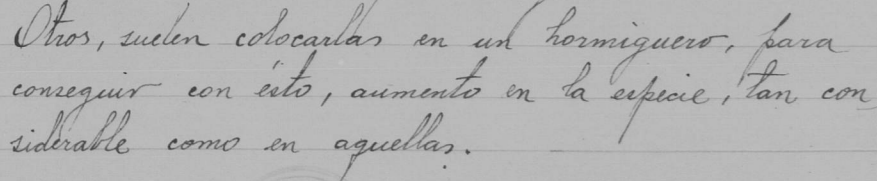 Otros, suelen colocarlas en un hormiguero, para
conseguir con ésto, aumento en la especie, tan con_
siderable como en aquellas.